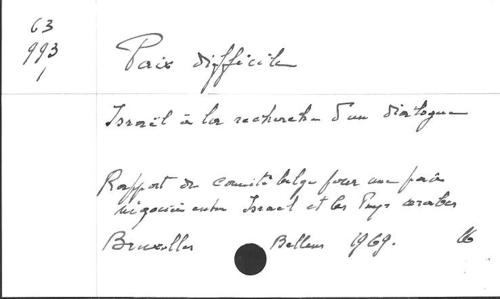 63
993
1
Paix difficile
Israël à la recherche d'un dialogue
Rapport du comité belge pour une paix
négociée entre Israël et les Pays arabes
Bruxelles Bellens 1969.